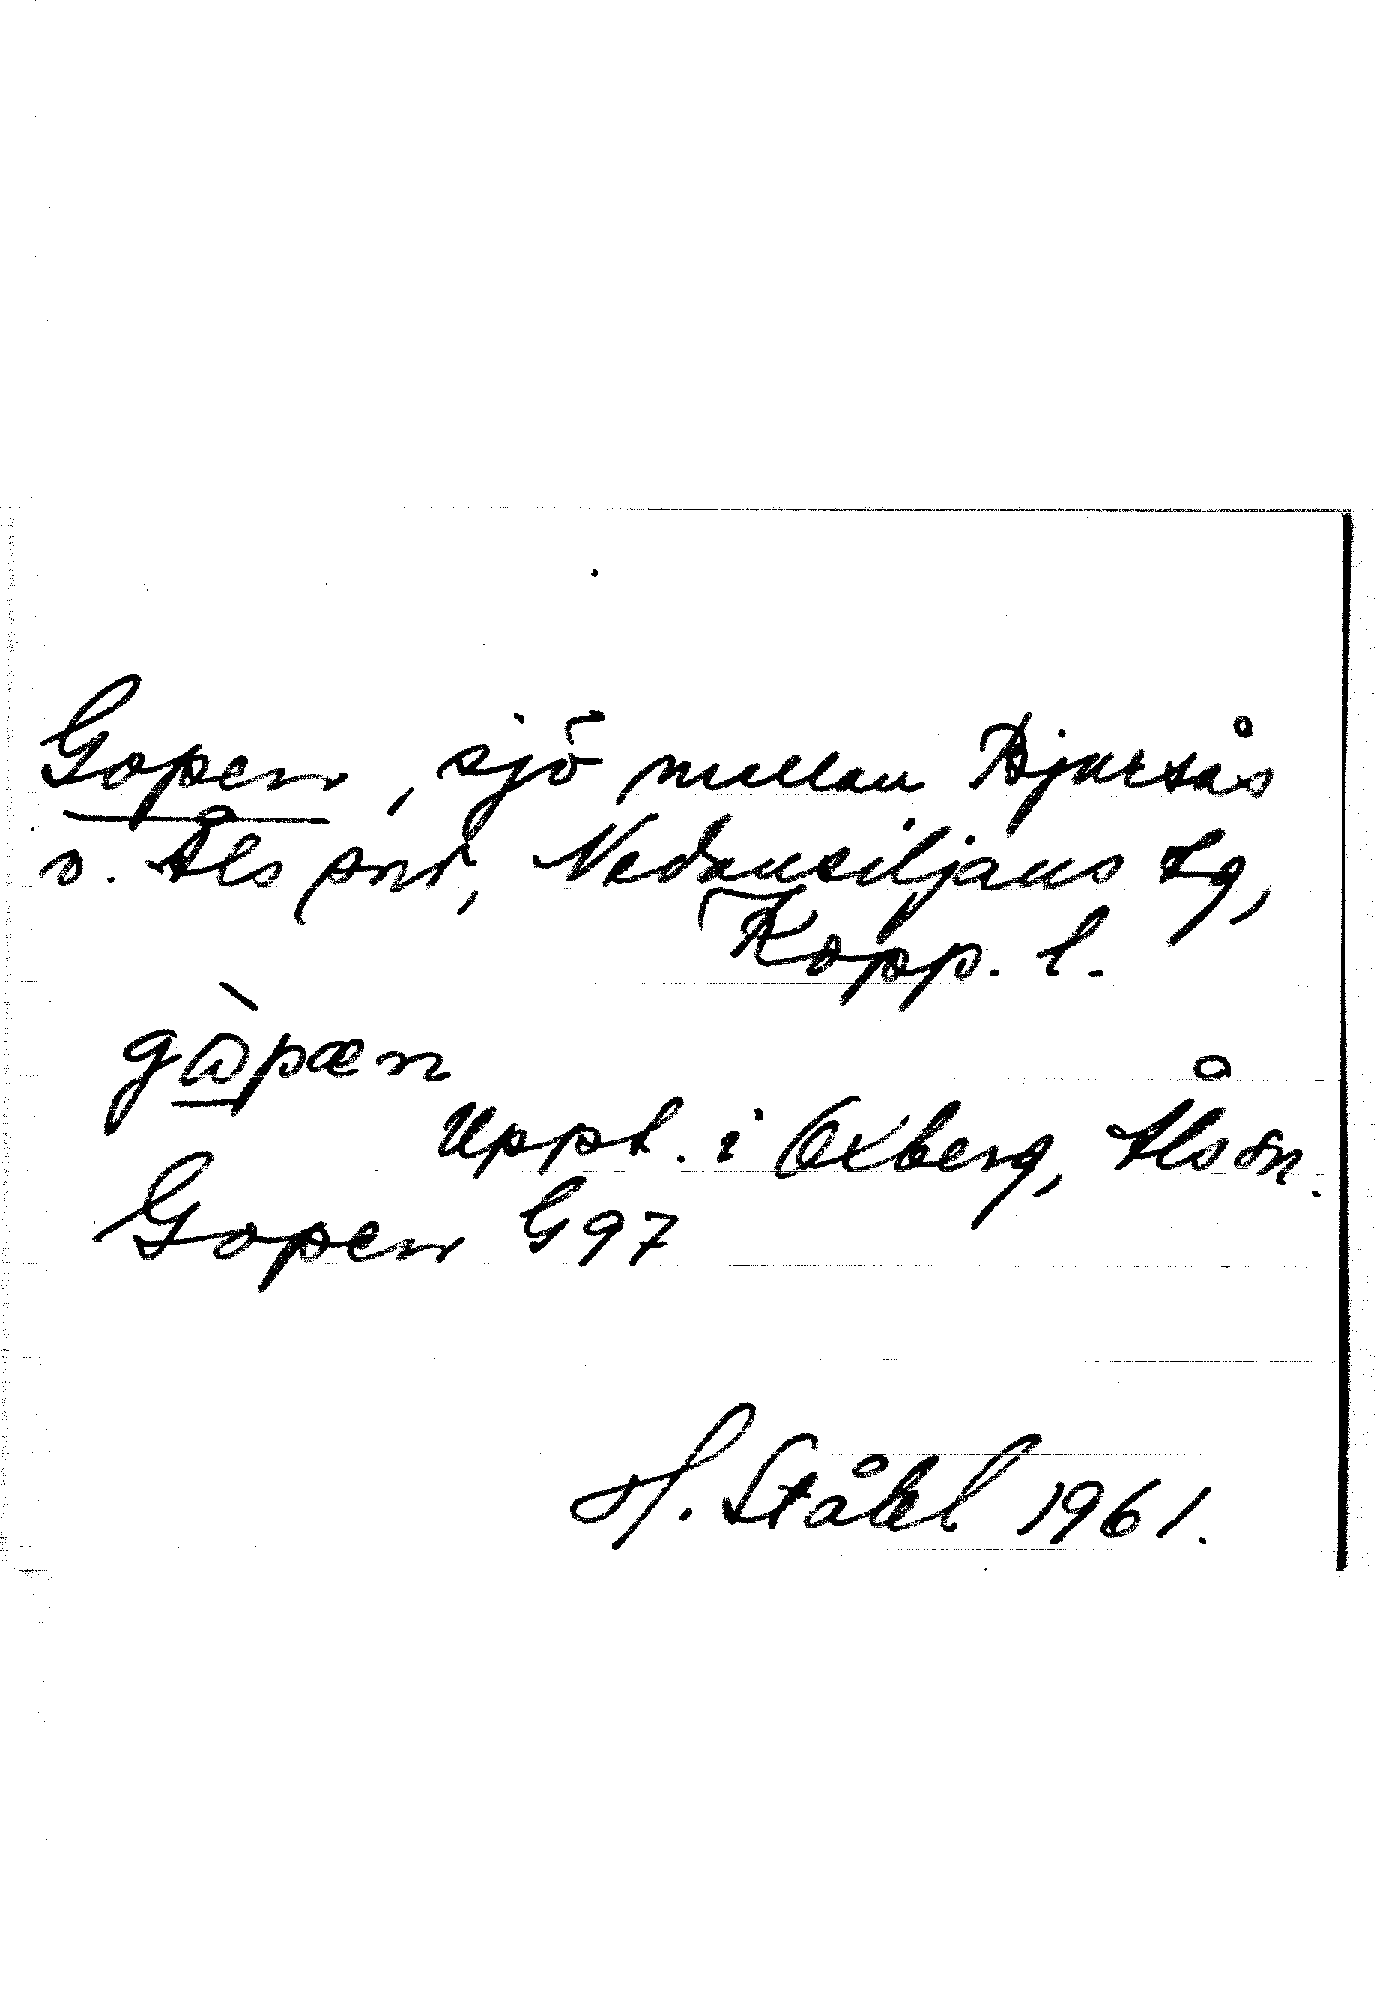 Gopen, sjö mellan Bjursås
o. Åls snr, Nedansiljans tg,
Kopp. l.
gɷ̀pæn
Uppt. i Oxberg, Åls sn.
Gopen G97
H. Ståhl 1961.